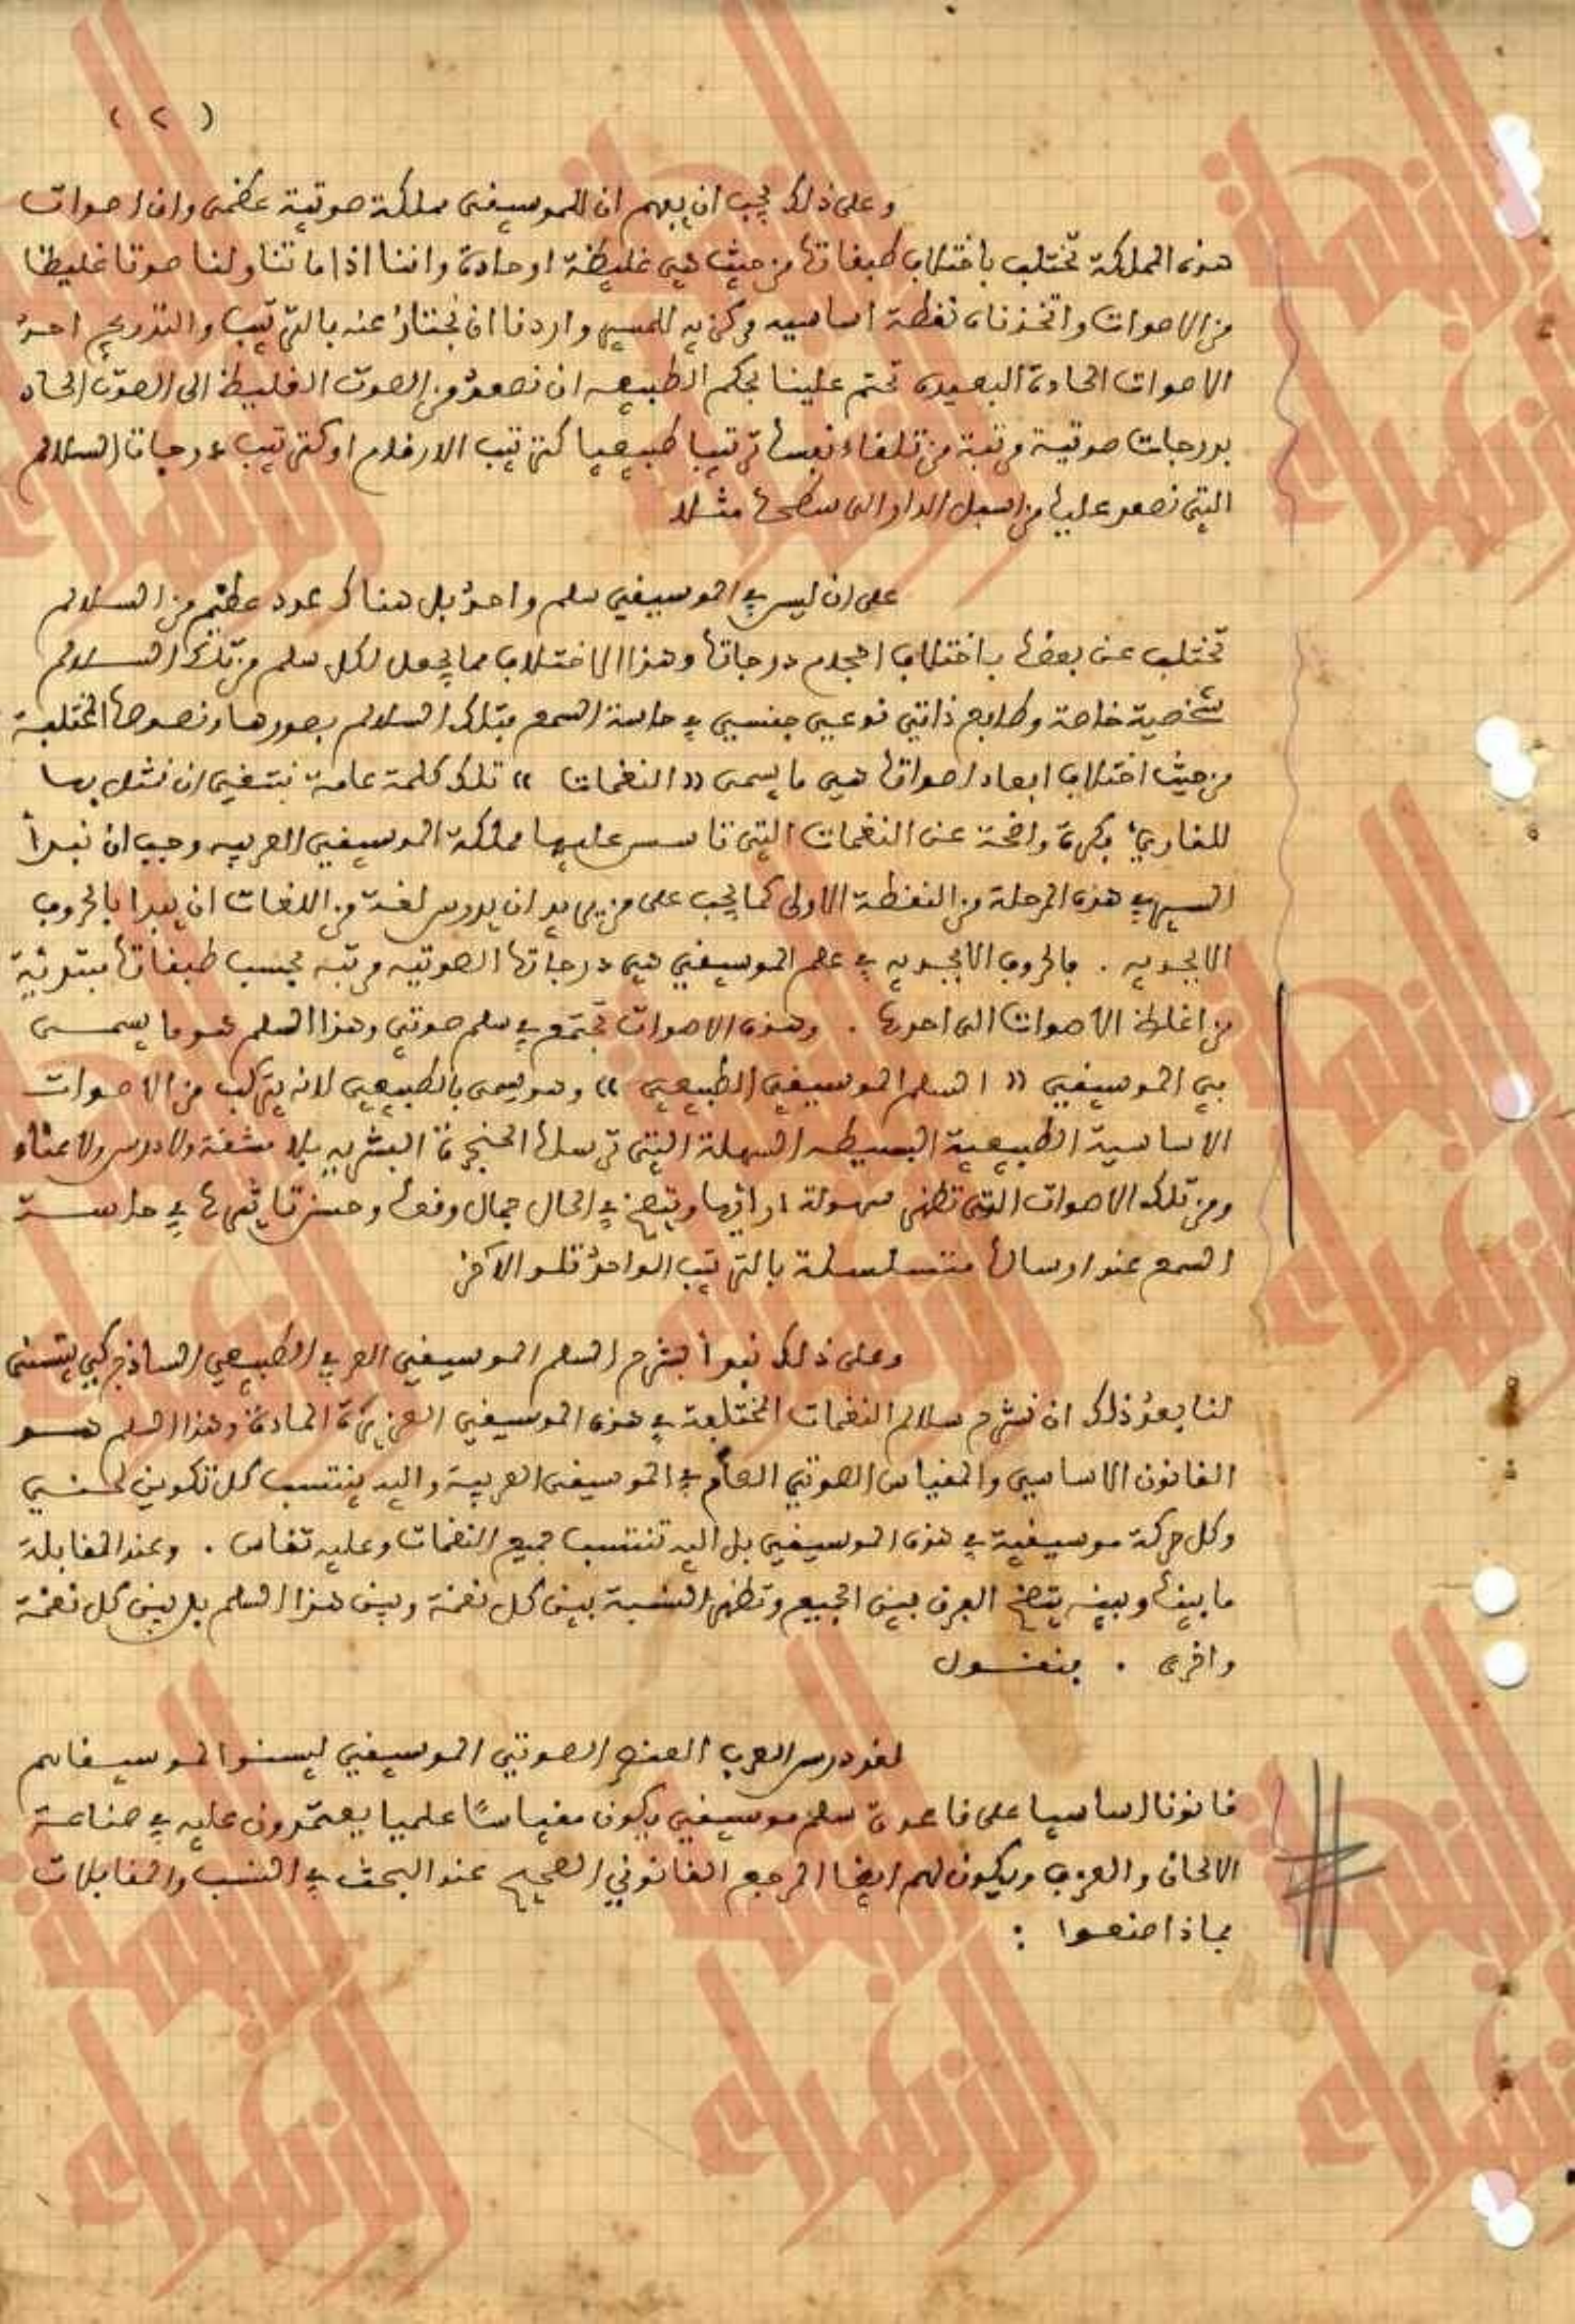 ( ٢ )
وعلى ذلك يجب ان يفهم ان للموسيقى مملكة صوتية عظمى وان اصوات
هذه المملكة تختلف باختلاف طبقاتها من حيث هي غليظة او حادة واننا اذا ما تناولنا صوتا غليظا
من الاصوات واتخذناه نقطة اساسيه مركزيه للسير واردنا ان نجتاز عنه بالترتيب والتدريج احد
الاصوات الحادة البعيده تحتم علينا بحكم الطبيعه ان نصعد من الصوت الغليظ الى الصوت الحاد
بدرجات صوتية مرتبة من تلقاء نفسها ترتيبا طبيعيا كترتيب الارقام او كترتيب درجات السلالم
التي نصعد عليها من اسفل الدار الى سطحها مثلا
على ان ليس في الموسيقى سلم واحد بل هناك عدد عظيم من السلالم
تختلف عن بعضها باختلاف احجام درجاتها وهذا الاختلاف مما يجعل لكل سلم من تلك السلالم
شخصية خاصة وطابع ذاتي نوعي جنسي في حاسة السمع فتلك السلالم بصورها ونصوصها المختلفة
من حيث اختلاف ابعاد اصواتها هي ما يسمى (( النغمات )) تلك كلمة عامة نبتغي ان نثل بها
للقارئ فكرة واضحة عن النغمات التي تاسس عليها مملكة الموسيقى العربيه وجب ان نبدأ
السير في هذه المرحلة من النقطة الاولى كما يجب على من يريد ان يدرس لغة من اللغات ان يبدا بالحروف
الابجديه . فالحروف الابجديه في علم الموسيقى هي درجاتها الصوتيه مرتبه بحسب طبقاتها مبتدئة
من اغلظ الاصوات الى احدها . وهذه الاصوات تجتمع في سلم صوتي وهذا السلم هو ما يسمى
في الموسيقى (( السلم الموسيقي الطبيعي )) وهو يسمى بالطبيعي لانه يتركب من الاصوات
الاساسية الطبيعية البسيطه السهلة التي ترسلها الحنجرة البشريه بلا مشقة ولا درس ولا عناء
ومن تلك الاصوات التي تظهر سهولة ادائها ويتضح في الحال جمال وقعها وحسن تاثيرها في حاسة
السمع عند ارسالها متسلسلة بالترتيب الواحد تلو الآخر
وعلى ذلك نبدأ بشرح السلم الموسيقي العربي الطبيعي الساذج كي يتسنى
لنا بعد ذلك ان نشرح سلالم النغمات المختلفة في هذه الموسيقى الغزيرة المادة وهذا السلم هو
القانون الاساسي والمقياس الصوتي العام في الموسيقى العربية واليه ينتسب كل تكوين لحني
وكل حركة موسيقية في هذه الموسيقى بل اليه تنتسب جميع النغمات وعليه تقاس . وعند المقابلة
ما بينها وبينه يتضح الفرق بين الجميع وتظهر النسبة بين كل نغمة وبين هذا السلم بل بين كل نغمة
واخرى . فنقول
لقد درس العرب العنصر الصوتي الموسيقي ليسنوا لموسيقاهم
قانونا اساسيا على قاعدة سلم موسيقي يكون مقياسًا علميا يعتمدون عليه في صناعة
الالحان والعزف ويكون لهم ايضا المرجع القانوني الصحيح عند البحث في النسب والمقابلات
فماذا صنعوا :